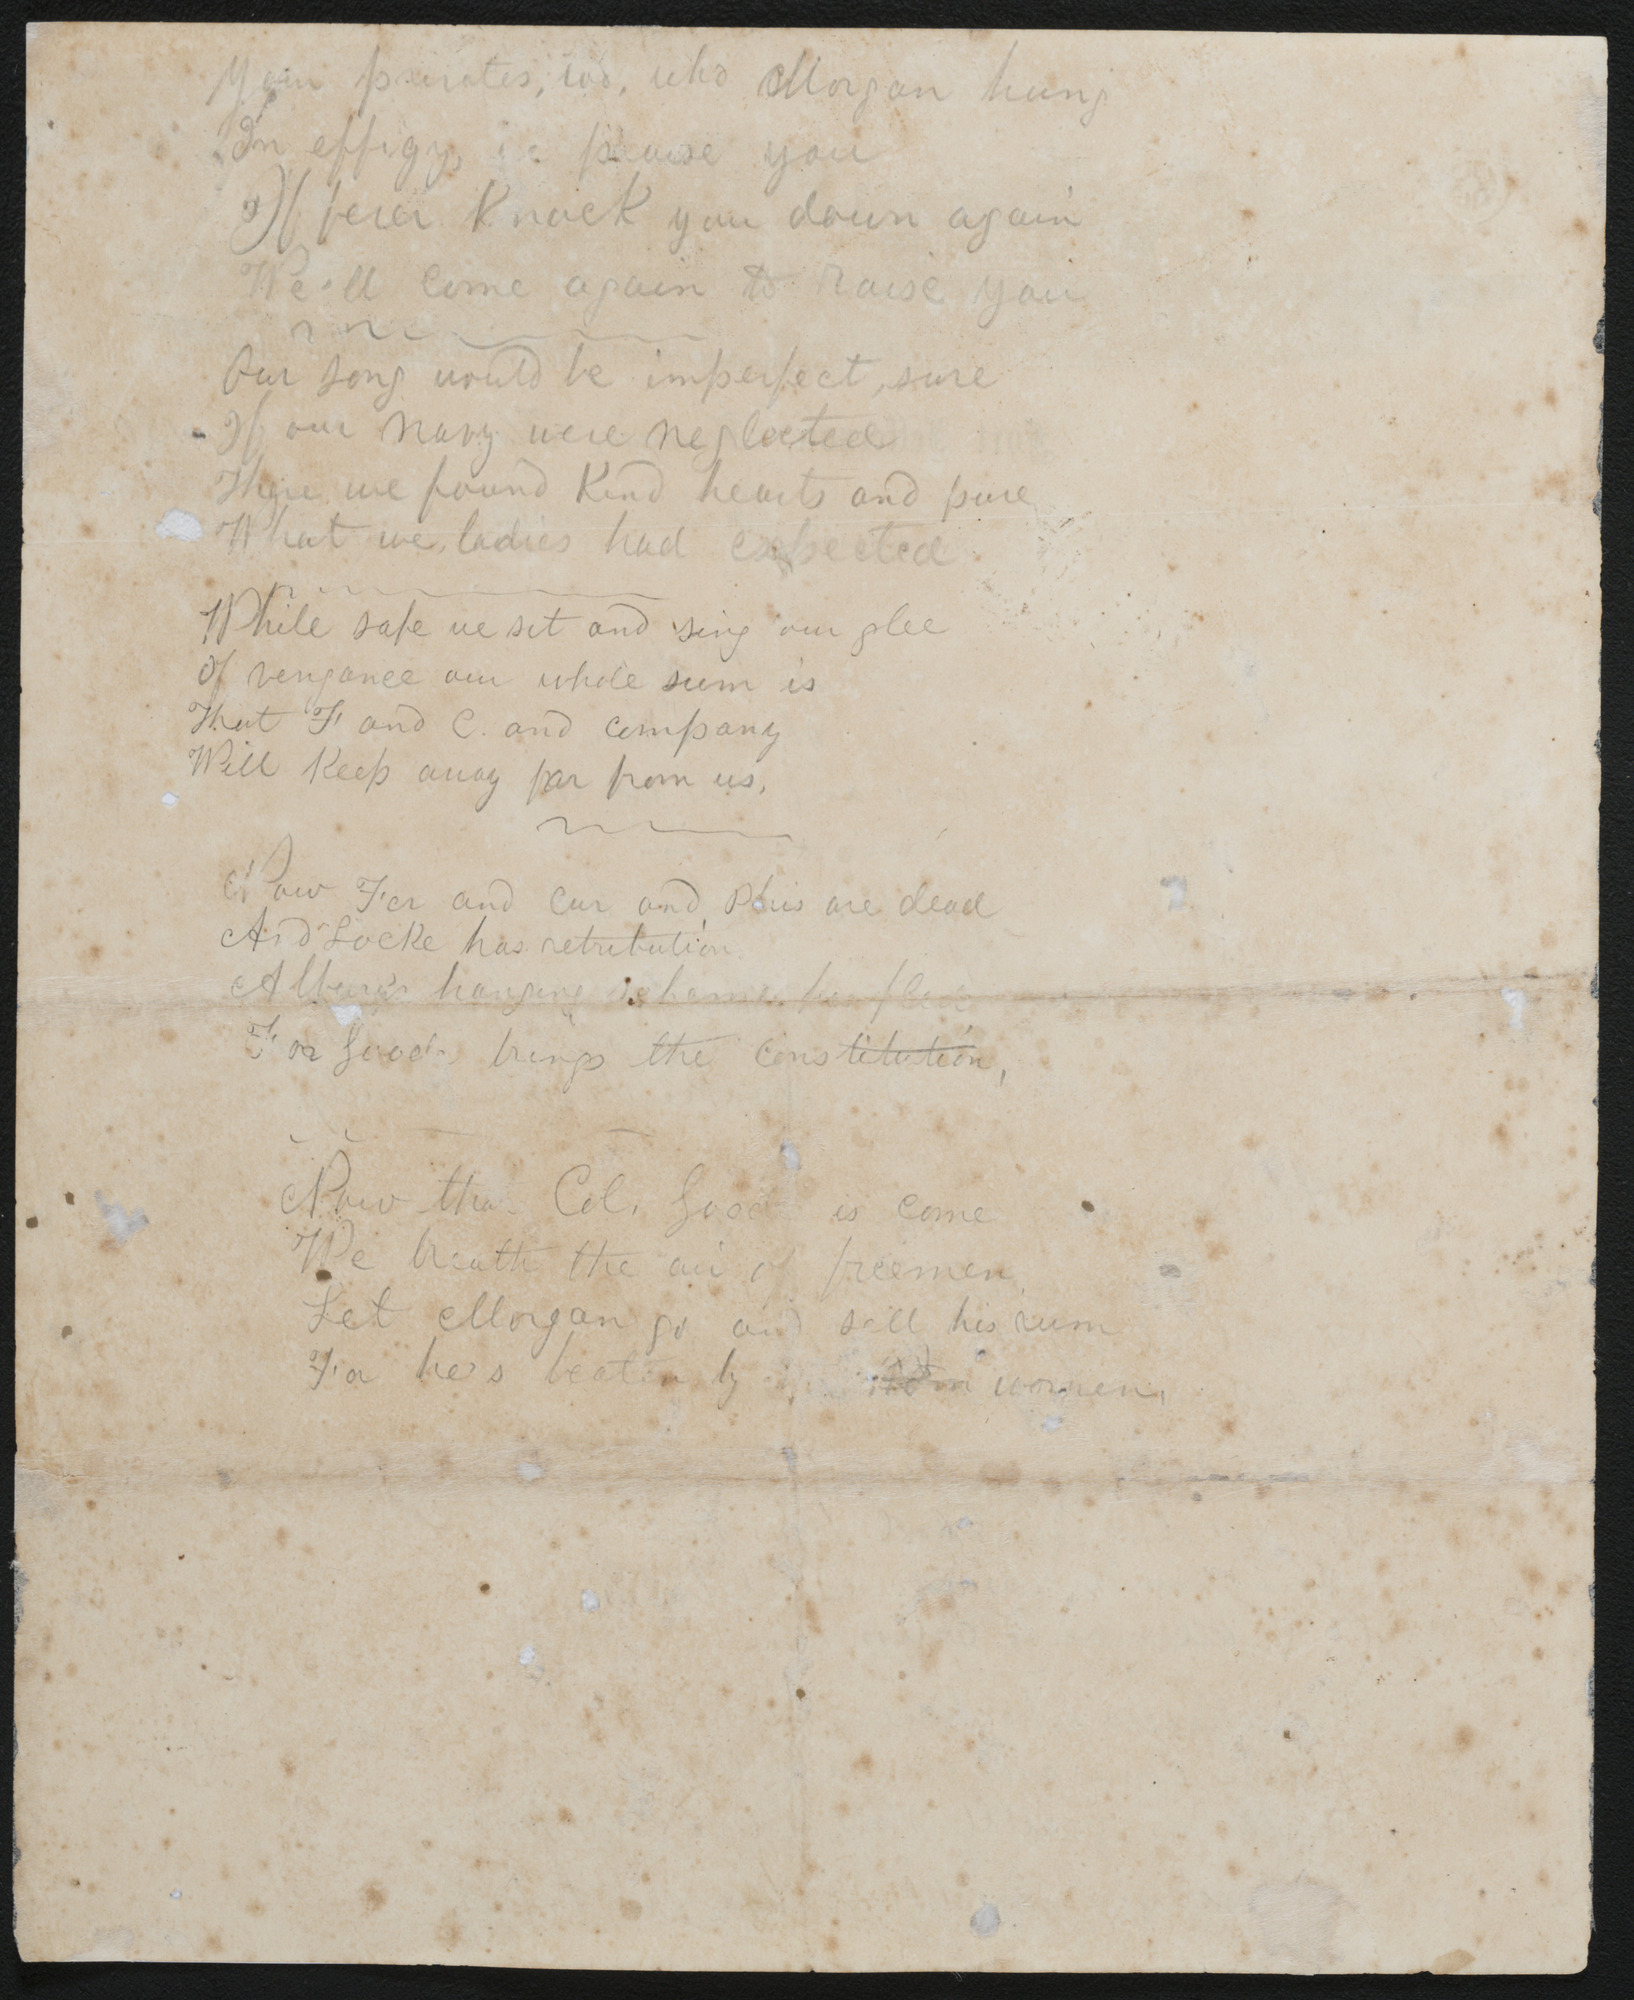 Your pirates, too, who Morgan hung
In effigy, to praise you
If fever Knock you down again
We'll come again to raise you
Our song would be imperfect, sure
If our Navy were neglected
There we found Kind hearts and pure
What we, ladies had expected
While safe we sit and sing our glee
Of vengance our whole sum is
That F and C. and company
Will Keep away far from us,
Now Fer and Cur and are dead
And Locke has retribution
hanging scheme has fled
For Good brings the constitution,
Now that Col. Good is come
We breath the air of freemen
Let Morgan go and sell his rum
For he's beaten by women,